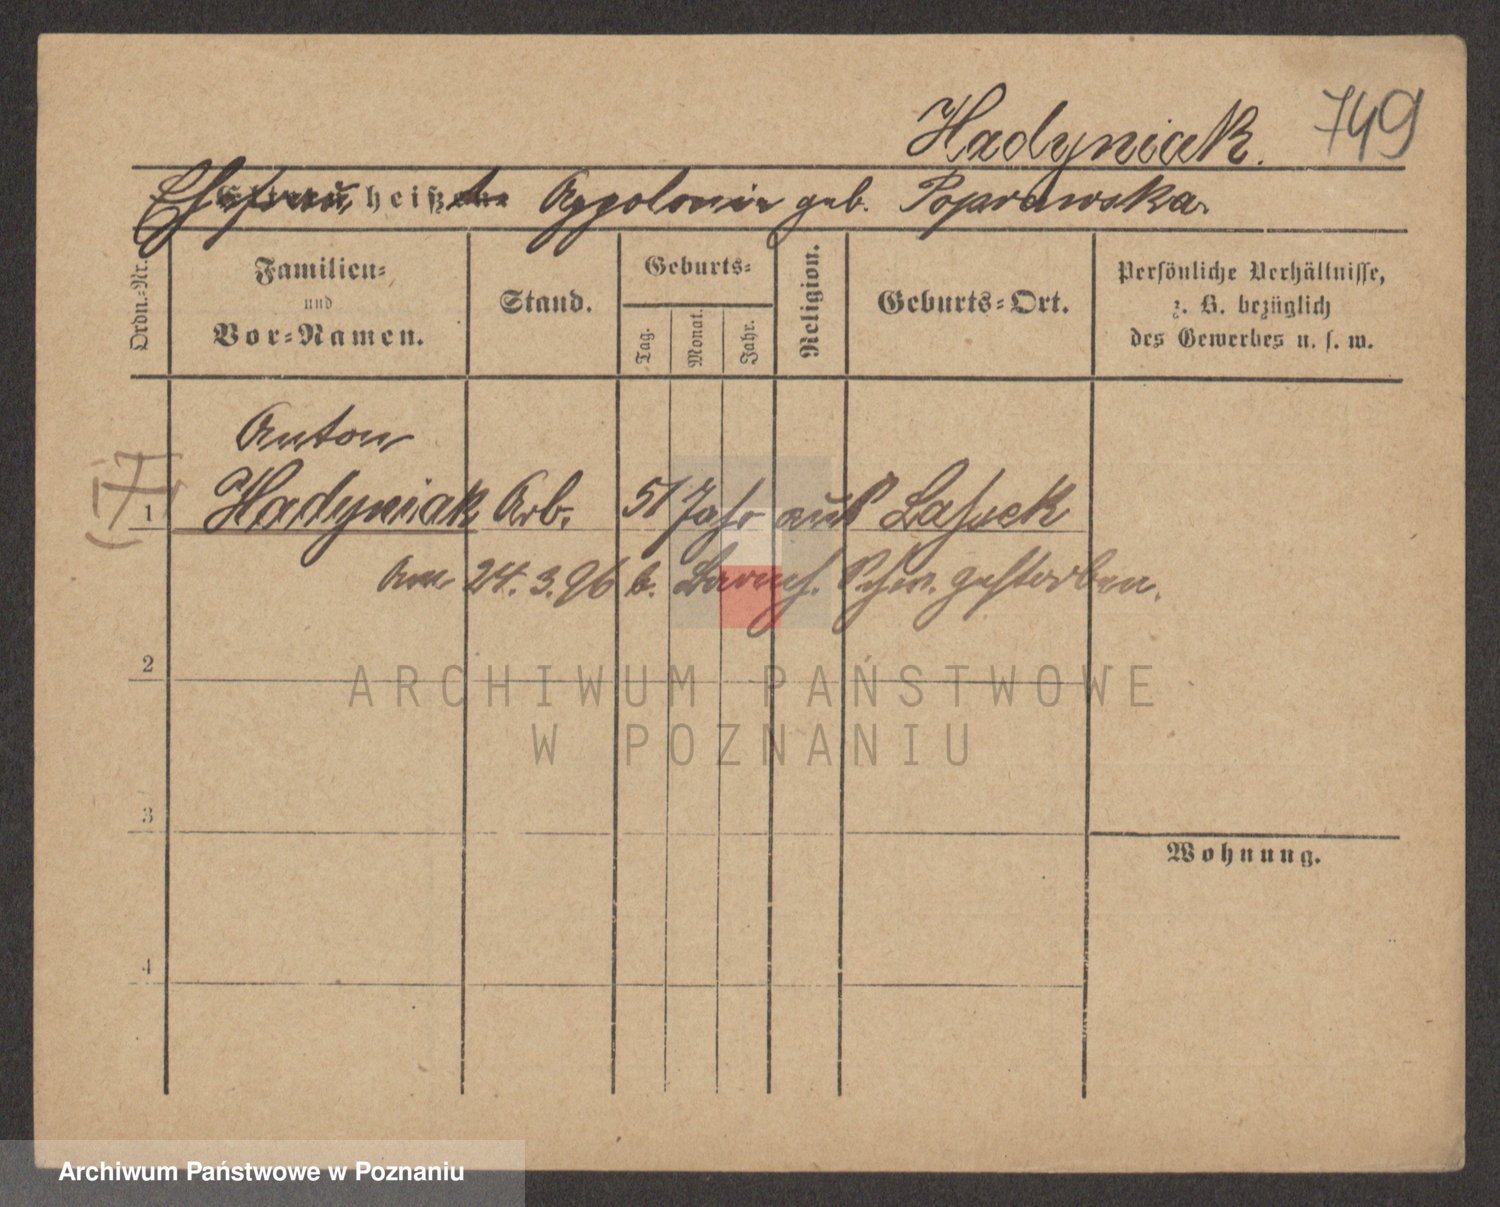 Hadyniak.
749
Ehefrau heißt Appolonia geb. Poprawska.
Ordn.-Nr.
Familien-
und
Vor-Namen.
Stand.
Geburts-
Tag.
Monat.
Jahr.
Religion.
Geburts-Ort.
Persönliche Verhältnisse,
z. B. bezüglich
des Gewerbes u. s. w.
Anton
1 Hadyniak Arb. 51 Jahr aus Lassek
Am 24.3.96 b. gestorben.
2
ARCHIWUM PAŃSTWOWE
W POZNANIU
3
Wohnung.
4
Archiwum Państwowe w Poznaniu